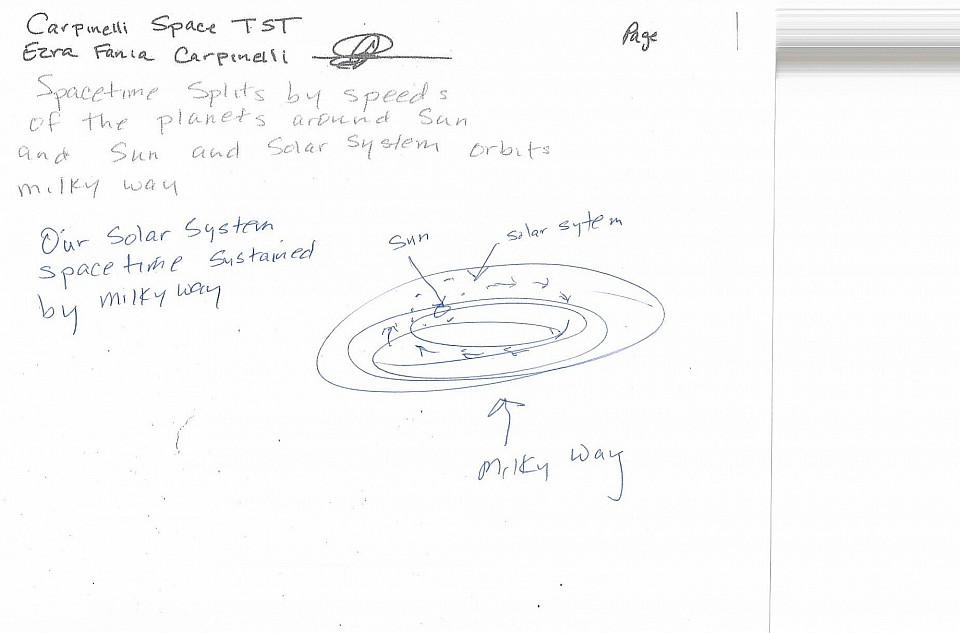 Carpinelli Space TST
Page |
Ezra Fania Carpinelli
Spacetime Splits by speeds
of the planets around Sun
and Sun and Solar System orbits
milky way
Our Solar System
spacetime sustained
by milky way
Sun
solar sytem
Milky Way